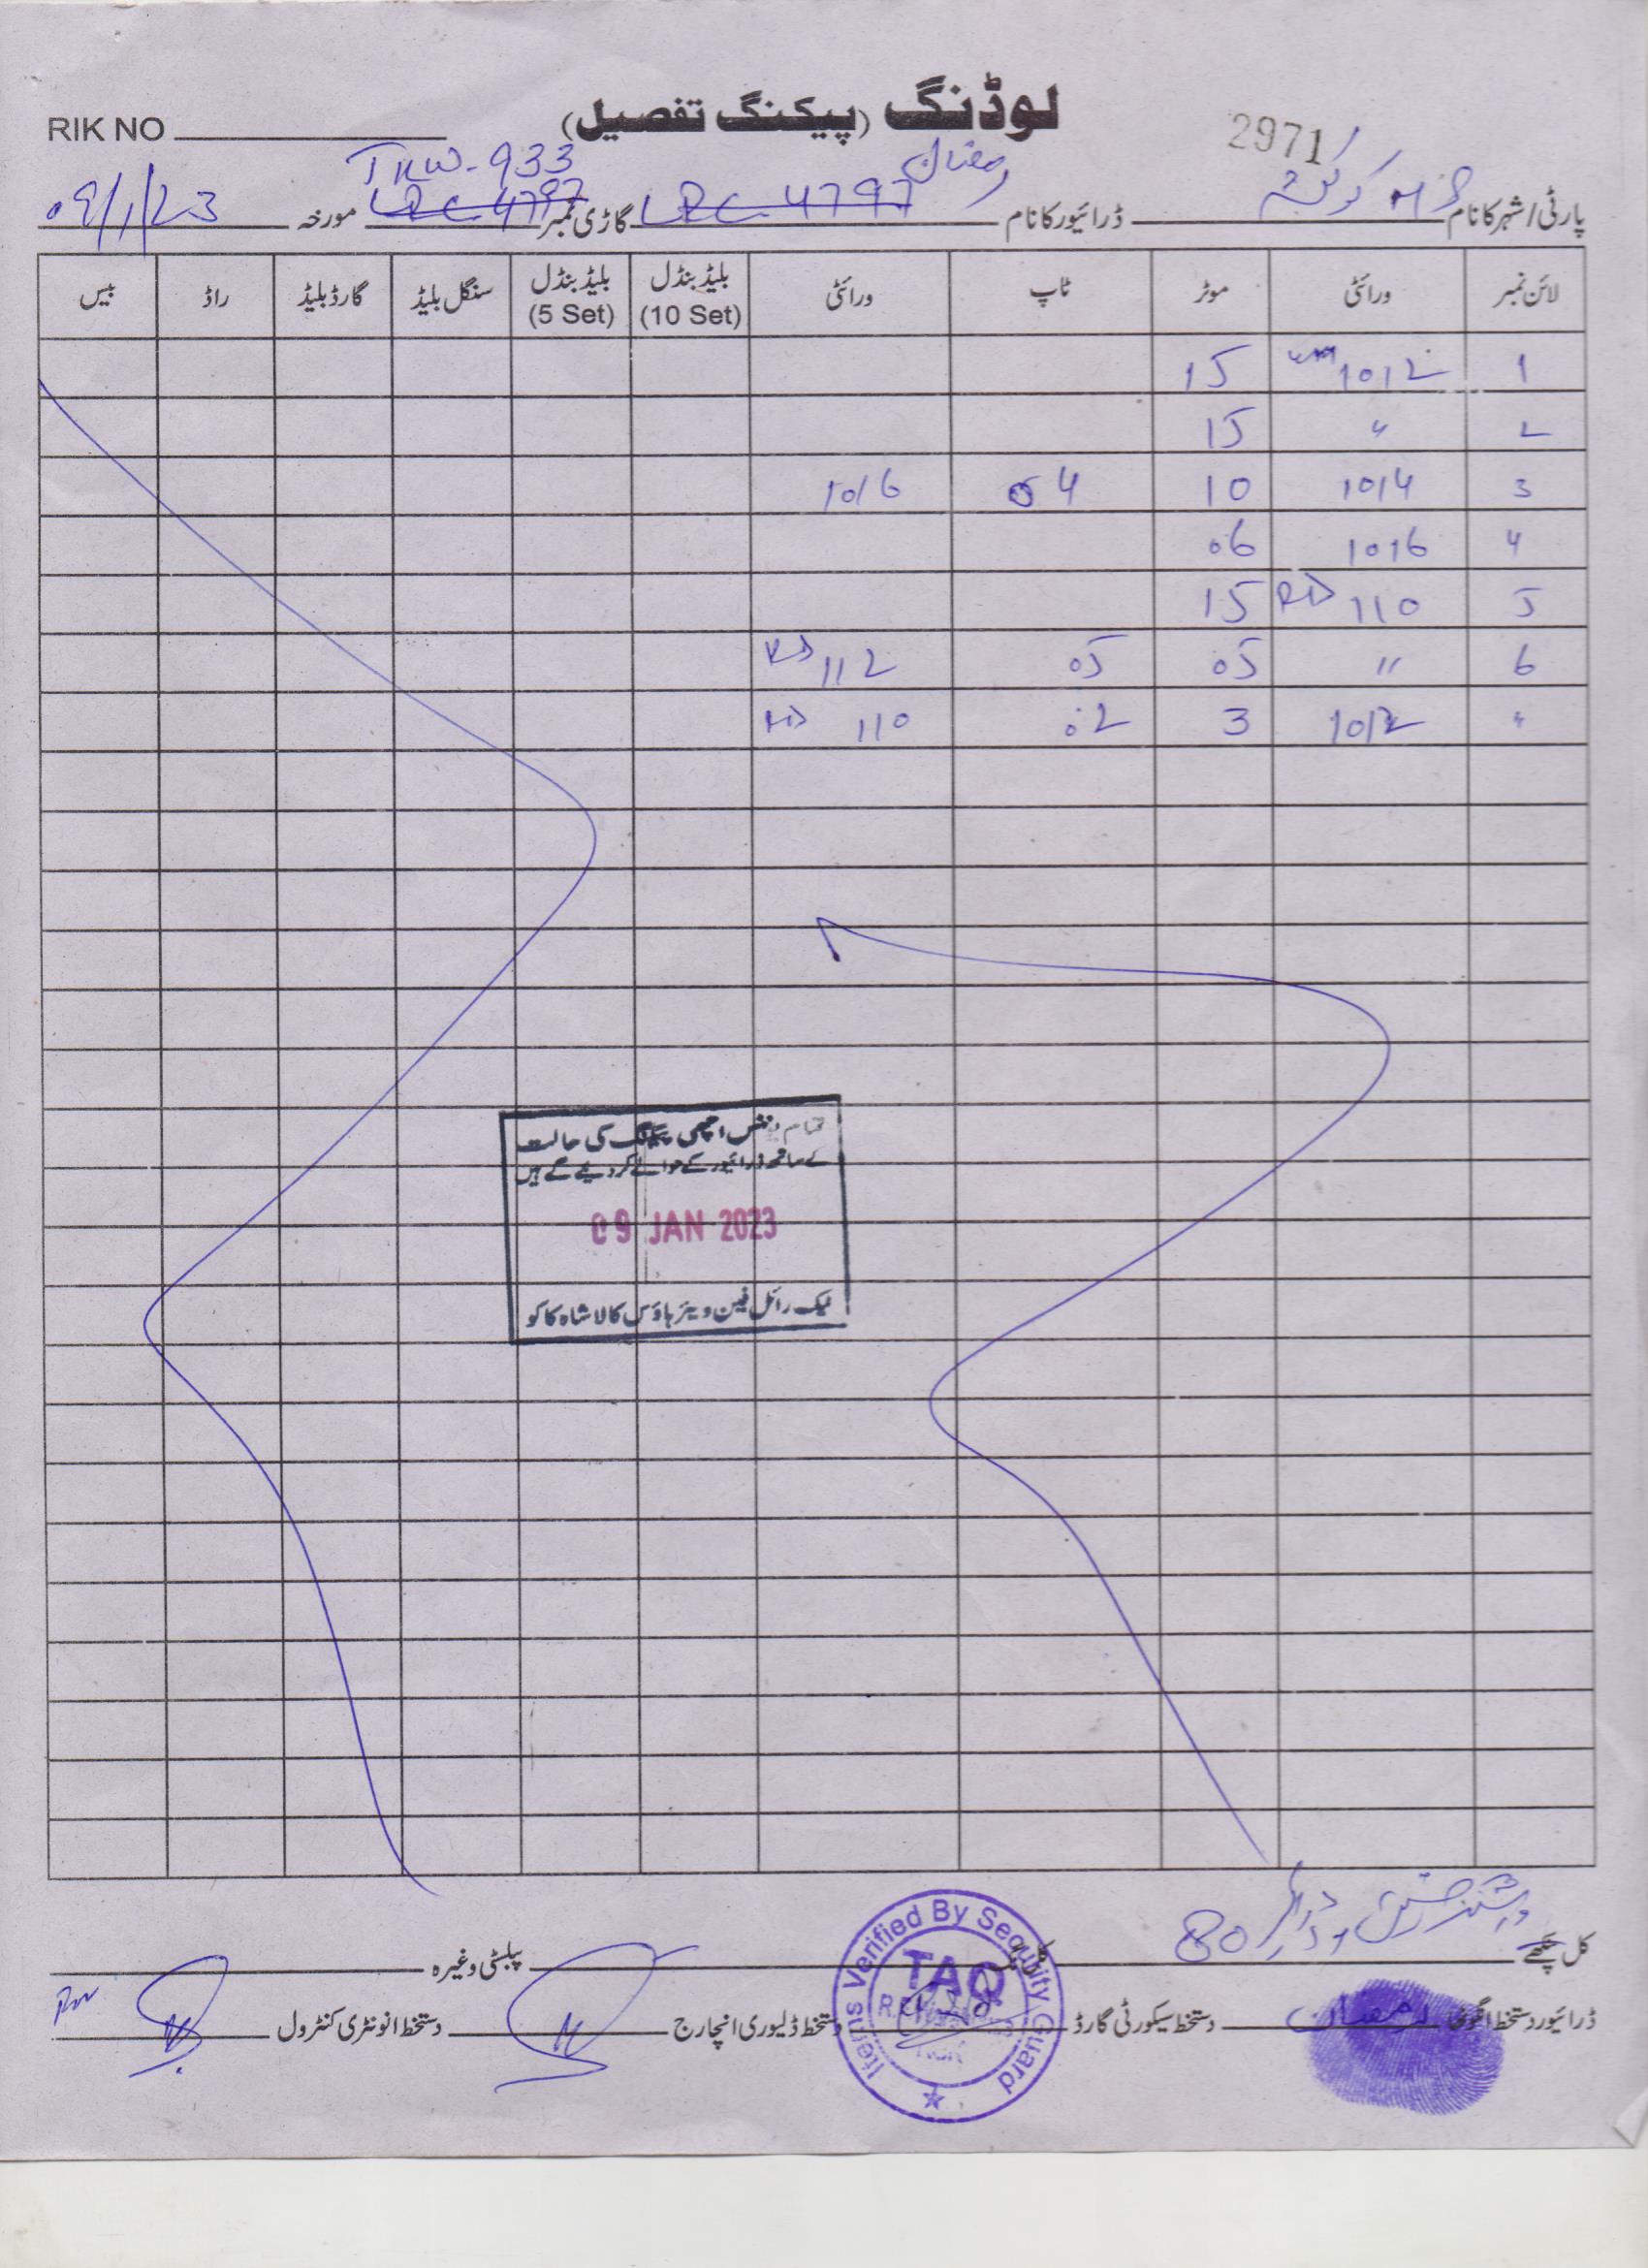 لوڈنگ (پیکنگ تفصیل)
RIK NO
2971
پارٹی/شہر کا نام MS کوئٹہ
ڈرائیور کا نام رمضان LRC 4797
گاڑی نمبر LRC 4797 TKW-933
مورخہ 09/1/23
لائن نمبر ورائٹی موٹر ٹاپ ورائٹی بلیڈ بنڈل (10 Set) بلیڈ بنڈل (5 Set) سنگل بلیڈ گارڈ بلیڈ راڈ بیس
1 1012 15
2 " 15
3 1014 10 04 1016
4 1016 06
5 RD 110 15
6 " 05 05 RD 112
" 1012 3 02 RD 110
تمام اچھی پیکنگ کی حالت
کے ساتھ ڈرائیور کے حوالے کر دیئے گے ہیں
09 JAN 2023
ٹیک رائل فین ویئر ہاؤس کالا شاہ کاکو
کل پنکھے 80
پبلسٹی وغیرہ
ڈرائیور دستخط انگوٹھا رمضان
دستخط سیکورٹی گارڈ
دستخط ڈلیوری انچارج
دستخط انونٹری کنٹرول
Items Verified By Security Guard
TAQ